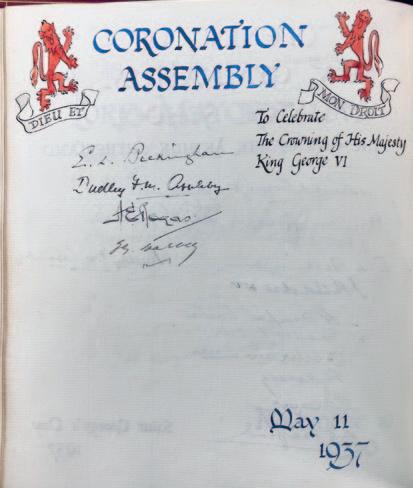 CORONATION
ASSEMBLY
DIEU ET
MON DROIT
To Celebrate
The Crowning of His Majesty
King George VI
Dudley
May 11
1937